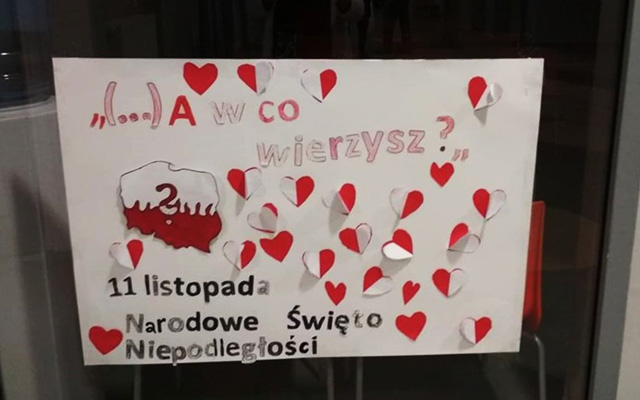 „(...) A w co
wierzysz?„
?
11 listopada
Narodowe Święto
Niepodległości